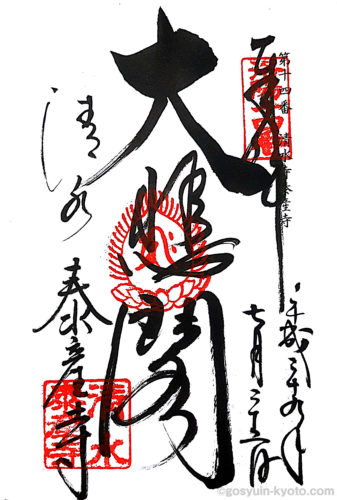 第十四番 清水寺泰産寺
奉拝
平成二十九年
七月
大悲閣
清水
泰産寺
清水
泰産寺
©gosyuin-kyoto.com